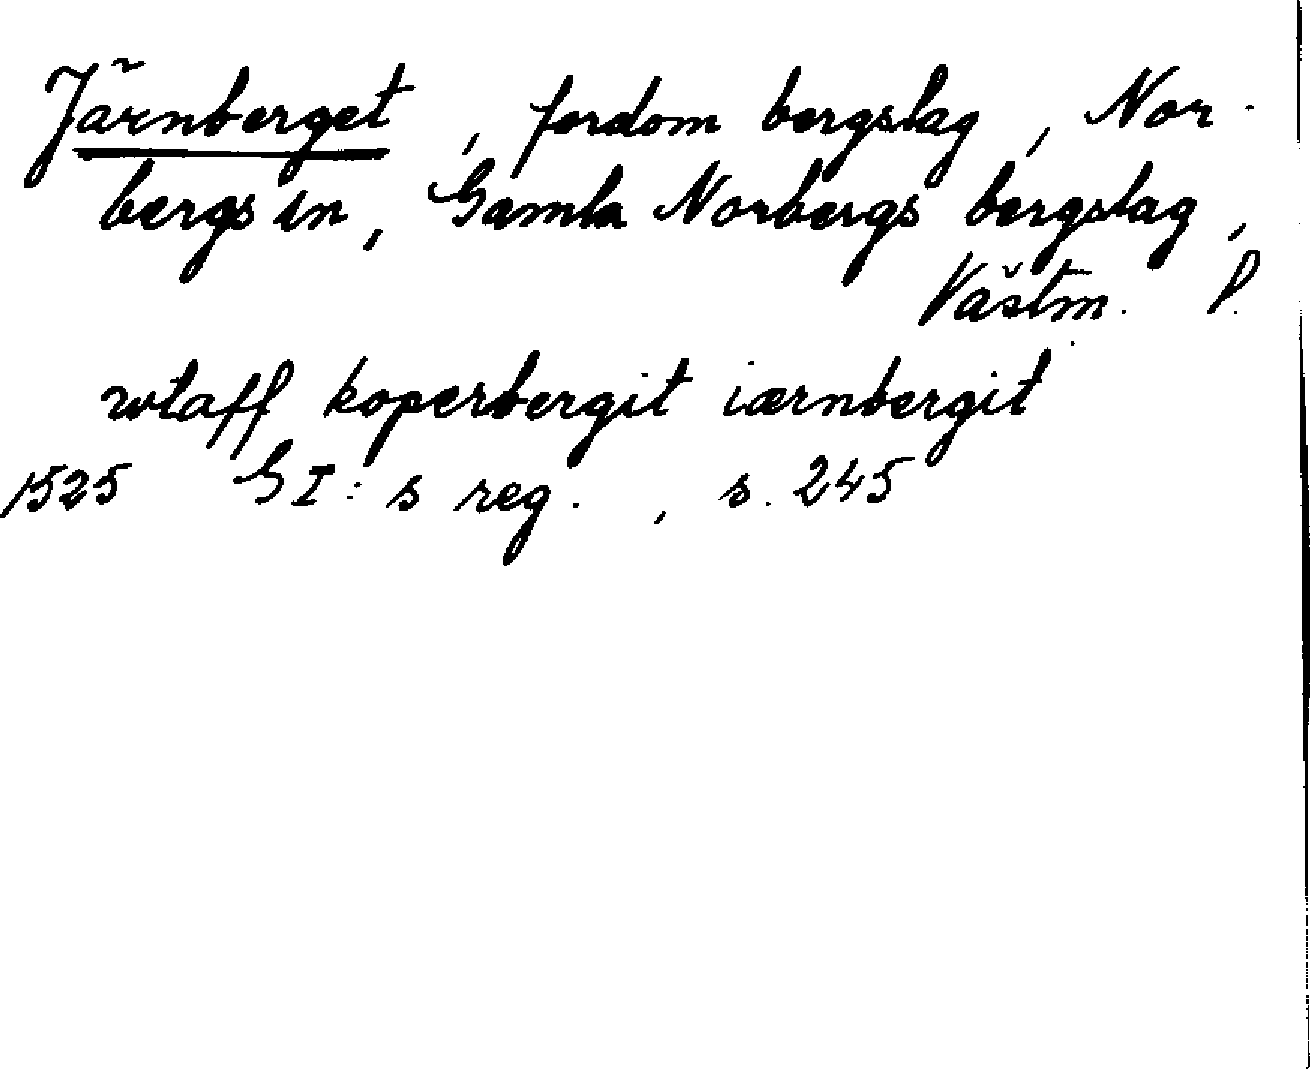 Järnberget, fordom bergslag, Nor-
bergs sn, Gamla Norbergs bergslag,
Västml.
wtaff koperbergit iærnbergit
1525 G I:s reg., s. 245